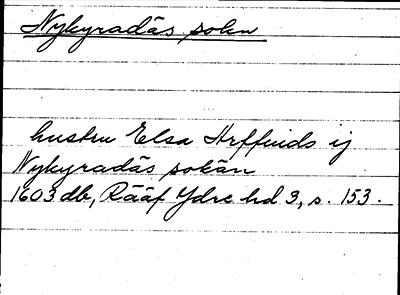 Nykyradäs sokn
hustru Elsa Arffuids ij
Nykyradäs sokän
1603 db, Rääf Ydre hd 3, s. 153.